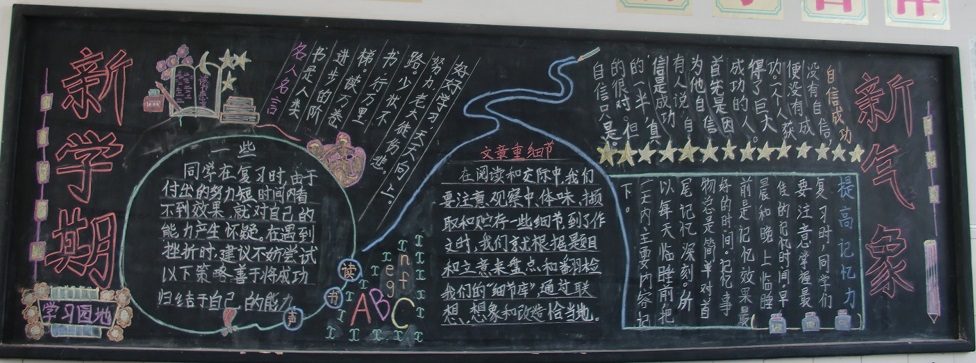 新学期
学习园地
名人名言
书是人类
进步的阶
梯。被万卷
书,行万里
路。少壮不
努力,老大徒伤悲。
好好学习,天天向上。
一些
同学在复习时,由于
付出的努力短时间内看
不到效果,就对自己的
能力产生怀疑。在遇到
挫折时,建议不妨尝试
以下策略善于将成功
归结于自己的能力
读
书
声
ABC
文章重细节
在阅读和交际中,我们
要注意观察中,体味,撷
取和贮存一些细节,到了作
文时,我们就根据题目
和立意来盘点和善羽检
我们的"细节库",通过联
想、想象和改造恰当地。
自信成功
没有自信
便没有成
功。一个人获
得了巨大
成功的人
首先是因
为他自信
有人说自
信是成功
的一半,真
的很对。但
自信只是
提高记忆力
复习时,同学们
要注意掌握最
佳的记忆时间,早
晨和晚上临睡
前是记忆效果最
好的时间。记忆事
物总是简单对首
尾记忆深刻。所
以每天临睡前把
一天内主要内容记
下。
新气象